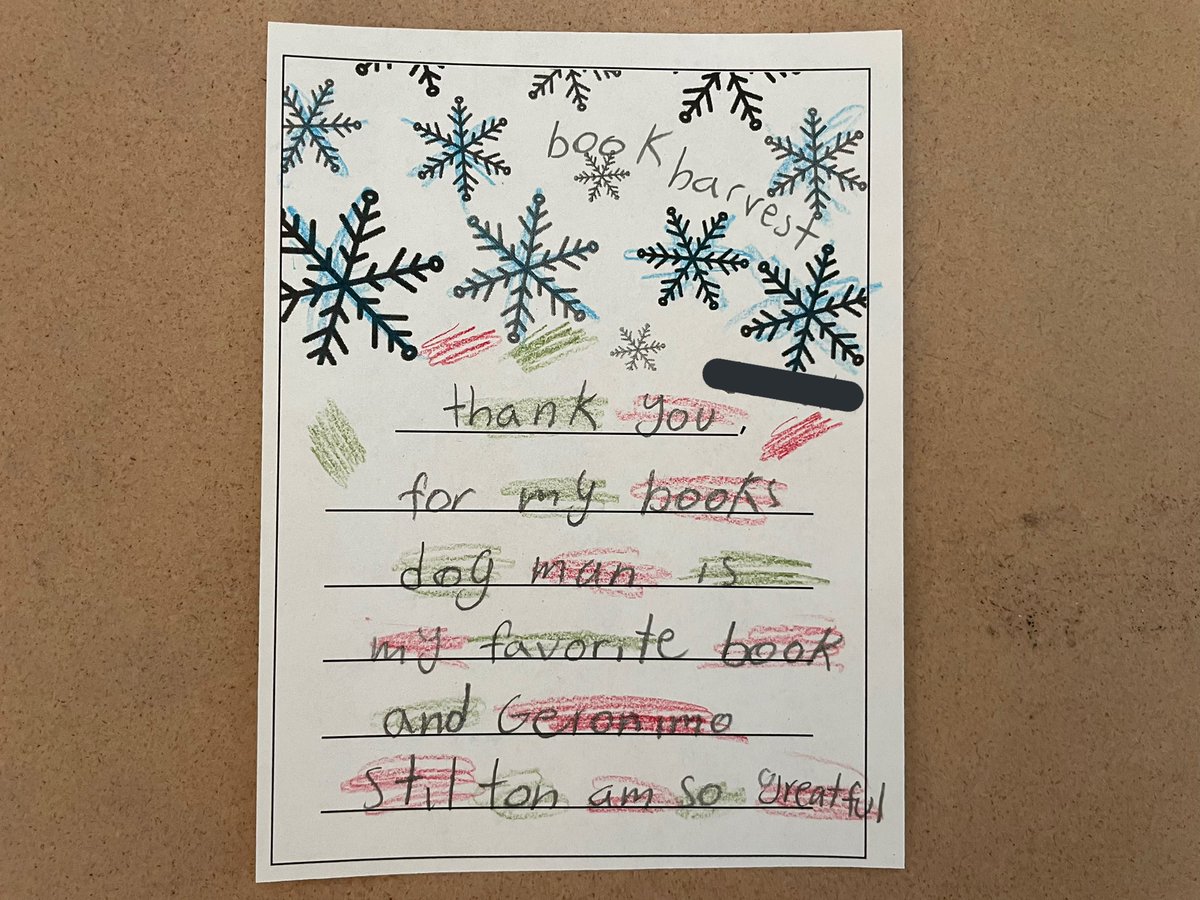 book harvest
thank you,
for my books
dog man is
my favorite book
and Geronimo
stilton am so greatful